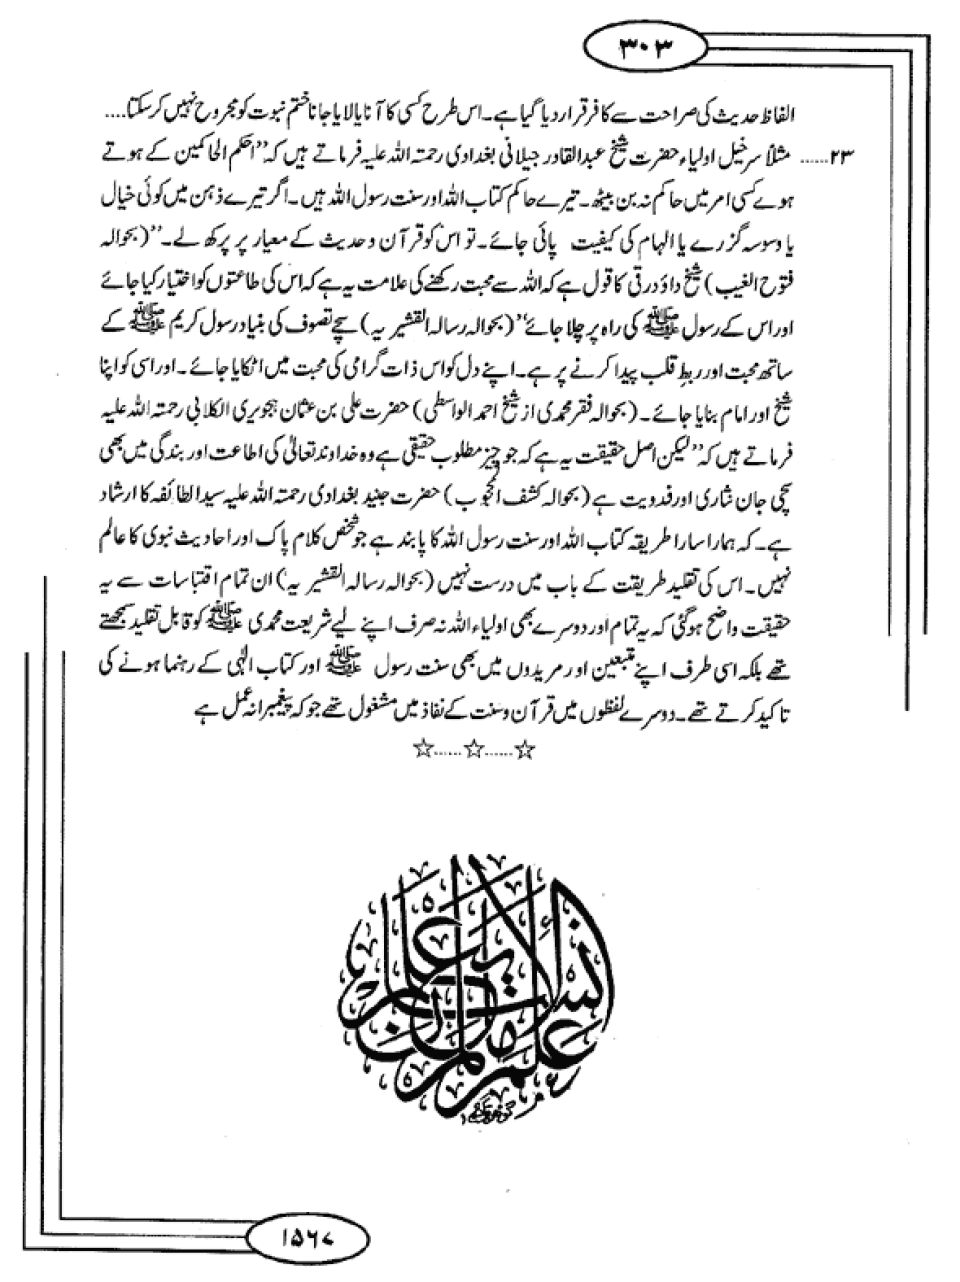 ۳۰۳
الفاظ حدیث کی صراحت سے کافر قرار دیا گیا ہے۔ اس طرح کسی کا آنا یا لایا جانا ختم نبوت کو مجروح نہیں کر سکتا....
۲۳...... مثلاً سرخیل اولیاء حضرت شیخ عبدالقادر جیلانی بغدادی رحمتہ اللہ علیہ فرماتے ہیں کہ ”احکم الحاکمین کے ہوتے
ہوے کسی امر میں حاکم نہ بن بیٹھ۔ تیرے حاکم کتاب اللہ اور سنت رسول اللہ ہیں۔ اگر تیرے ذہن میں کوئی خیال
یا وسوسہ گزرے یا الہام کی کیفیت پائی جائے۔ تو اس کو قرآن وحدیث کے معیار پر پرکھ لے۔“ (بحوالہ
فتوح الغیب) شیخ داؤد رقی کا قول ہے کہ اللہ سے محبت رکھنے کی علامت یہ ہے کہ اس کی طاعتوں کو اختیار کیا جائے
اور اس کے رسول ﷺ کی راہ پر چلا جائے“ (بحوالہ رسالہ القشیریہ) سچے تصوف کی بنیاد رسول کریم ﷺ کے
ساتھ محبت اور ربط قلب پیدا کرنے پر ہے۔ اپنے دل کو اس ذات گرامی کی محبت میں اٹکایا جائے۔ اور اسی کو اپنا
شیخ اور امام بنایا جائے۔ (بحوالہ فقر محمدی از شیخ احمد الواسطی) حضرت علی بن عثمان ہجویری الکلابی رحمتہ اللہ علیہ
فرماتے ہیں کہ ”لیکن اصل حقیقت یہ ہے کہ جو چیز مطلوب حقیقی ہے وہ خداوند تعالیٰ کی اطاعت اور بندگی میں بھی
سچی جان نثاری اور فدویت ہے (بحوالہ کشف المحجوب) حضرت جنید بغدادی رحمتہ اللہ علیہ سید الطائفہ کا ارشاد
ہے۔ کہ ہمارا سارا طریقہ کتاب اللہ اور سنت رسول اللہ کا پابند ہے جو شخص کلام پاک اور احادیث نبوی کا عالم
نہیں۔ اس کی تقلید طریقت کے باب میں درست نہیں (بحوالہ رسالہ القشیریہ) ان تمام اقتباسات سے یہ
حقیقت واضح ہو گئی کہ یہ تمام اور دوسرے بھی اولیاء اللہ نہ صرف اپنے لیے شریعت محمدی ﷺ کو قابل تقلید سمجھتے
تھے بلکہ اسی طرف اپنے متبعین اور مریدوں میں بھی سنت رسول ﷺ اور کتاب الٰہی کے رہنما ہونے کی
تاکید کرتے تھے۔ دوسرے لفظوں میں قرآن وسنت کے نفاذ میں مشغول تھے جو کہ پیغمبرانہ عمل ہے
☆......☆......☆
علم الانسان ما لم يعلم
۱۵۶۷